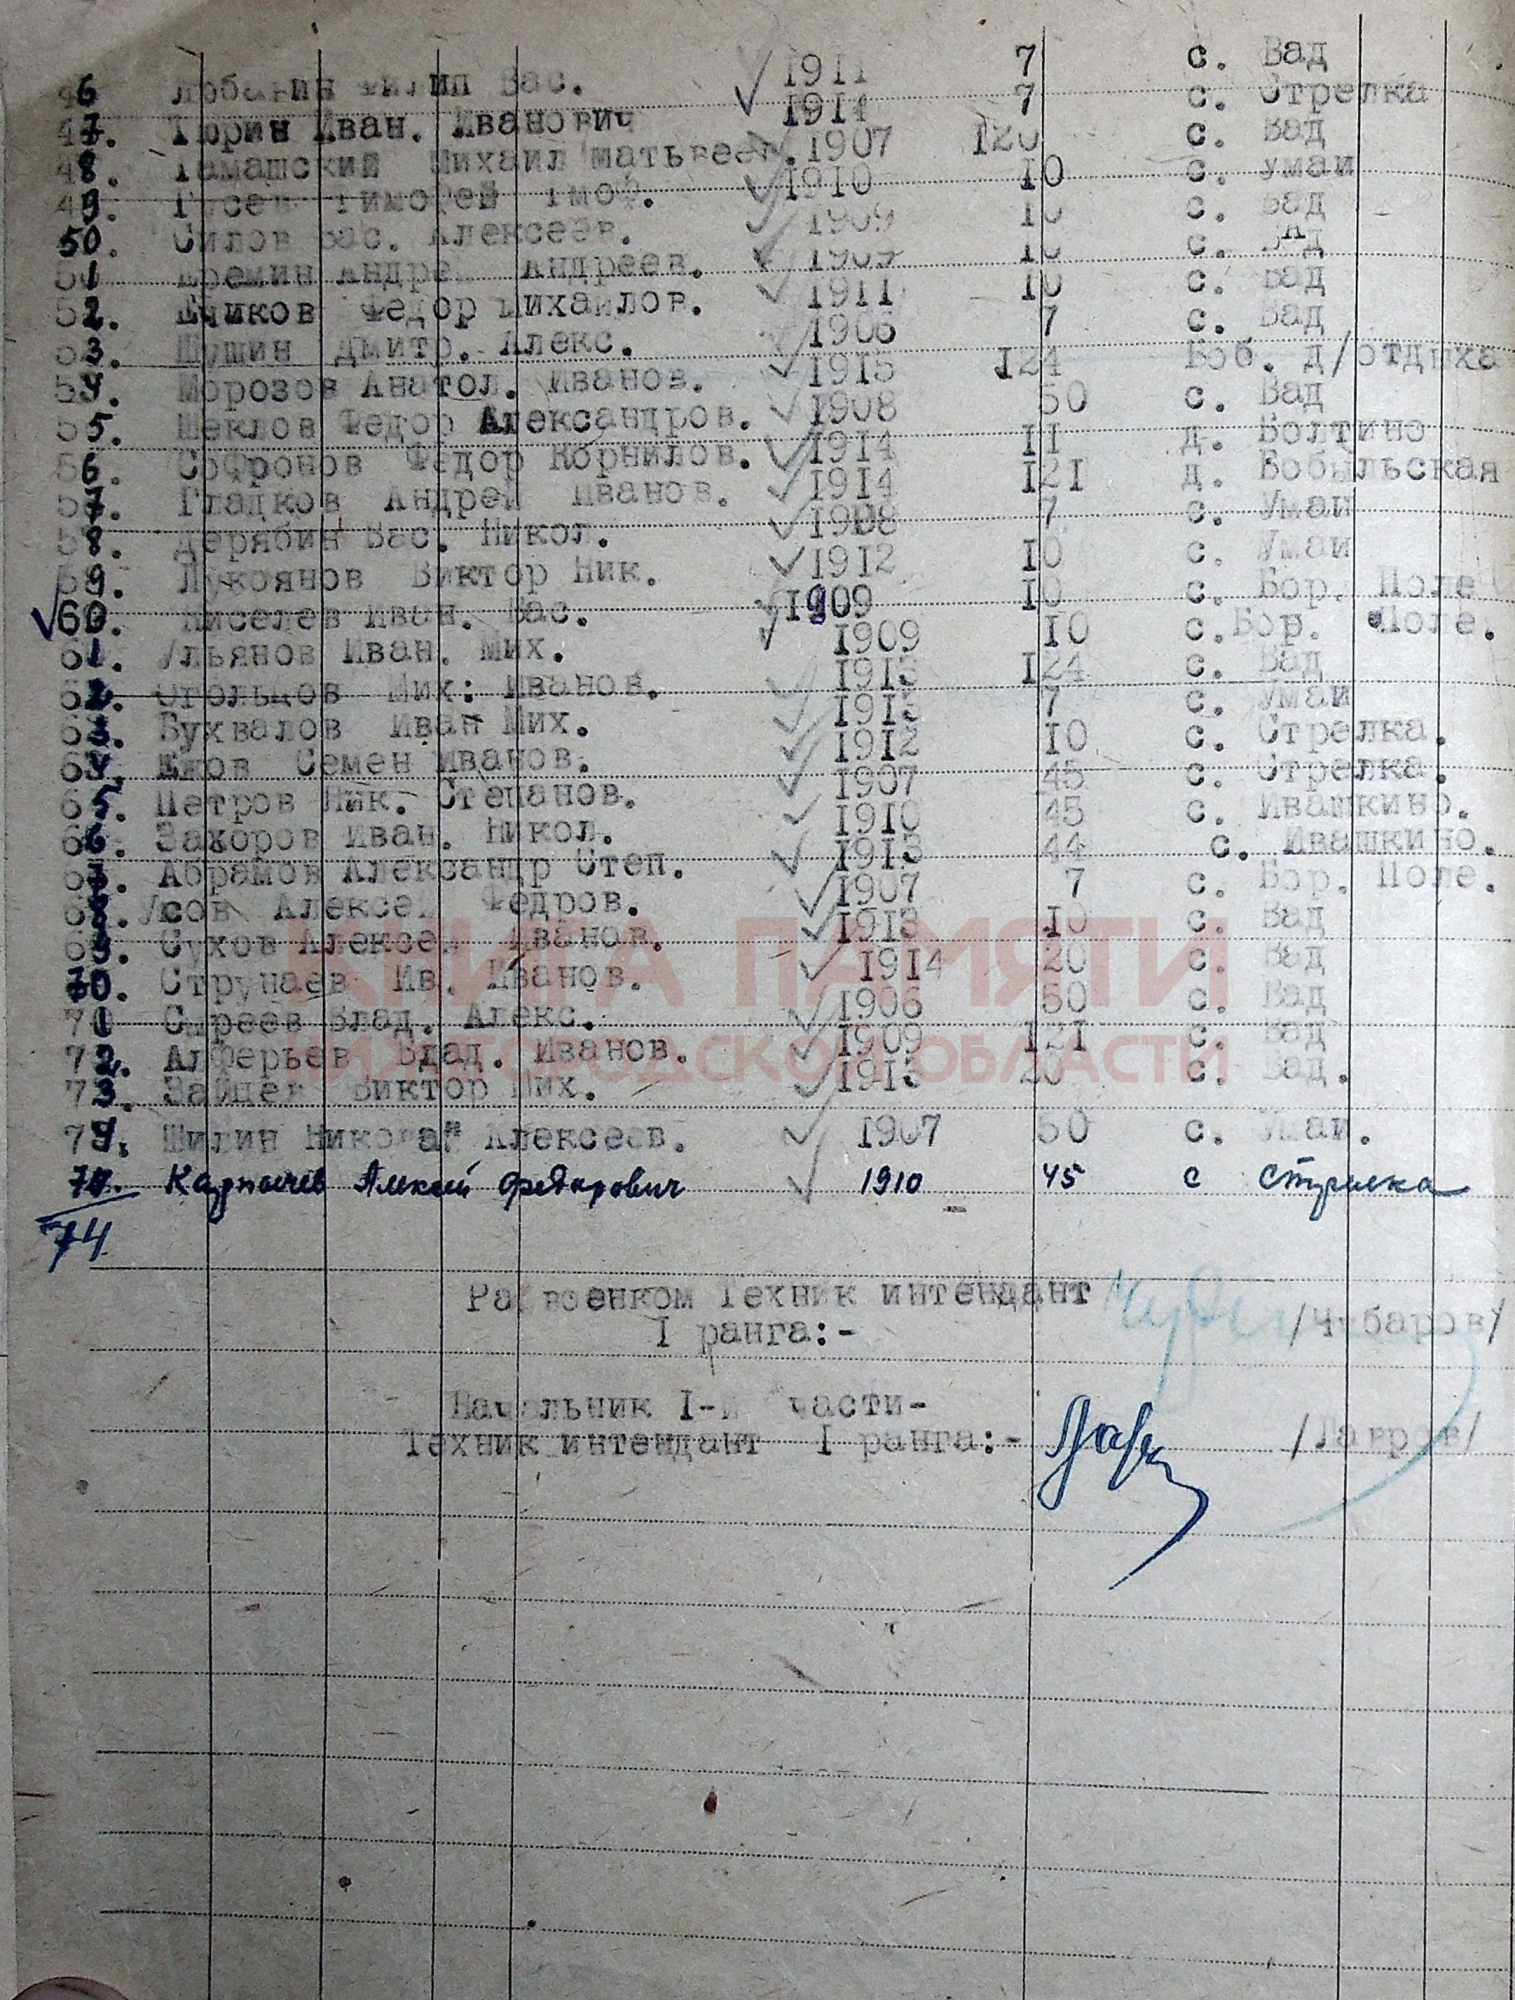 46 Лобанин Филип Вас. 1911 7 с. Вад
47. Тюрин Иван. Иванович 1914 7 с. Стрелка
48. Михаил Матьвеев. 1907 120 с. Вад
49. Гусев Тимофей Тмоф. 1910 10 с. Умаи
50. Силов Вас. Алексеев. 1909 10 с. Вад
51 Еремин Андрей Андреев. 1909 10 с. Вад
52. Федор Михаилов. 1911 10 с. Вад
53. Шушин Дмитр. Алекс. 1906 7 с. Вад
54. Морозов Анатол. Иванов. 1915 124 Боб. д/отдыха
55. Шеклов Федор Александров. 1908 50 с. Вад
56. Софронов Федор Корнилов. 1914 11 д. Болтино
57. Гладков Андреи Иванов. 1914 121 д. Бобыльская
58. Дерябин Вас. Никол. 1908 7 с. Умаи
59. Лукоянов Виктор Ник. 1912 10 с. Умаи
60. Киселев Иван. Вас. 1909 10 с. Бор. Поле
61. Ульянов Иван. Мих. 1909 10 с. Бор. Поле.
62. Мих: Иванов. 1913 124 с. Вад
63. Бухвалов Иван Мих. 1913 7 с. Умаи
64. Семен Иванов. 1912 10 с. Стрелка.
65. Петров Ник. Степанов. 1907 45 с. Стрелка.
66. Захоров Иван. Никол. 1910 45 с. Ивашкино.
67. Абрамов Александр Степ. 1913 44 с. Ивашкино.
68. Усов Алексей Федров. 1907 7 с. Бор. Поле.
69. Сухов Алексеи Иванов. 1913 10 с. Вад
70. Струнаев Ив. Иванов. 1914 20 с. Вад
71 Сыреев Влад. Алекс. 1906 50 с. Вад
72. Алферьев Влад. Иванов. 1909 121 с. Вад
73. Зайцев Виктор Мих. 1915 20 с. Вад.
74. Шилин Николай Алексеев. 1907 50 с. Умаи.
Карпычев Алексей Федорович 1910 45 с Стрелка
74
Райвоенком Техник интендант
I ранга:- /Чубаров/
Начальник I-й части-
Техник интендант I ранга:- /Лавров/
КНИГА ПАМЯТИ
НИЖЕГОРОДСКОЙ ОБЛАСТИ